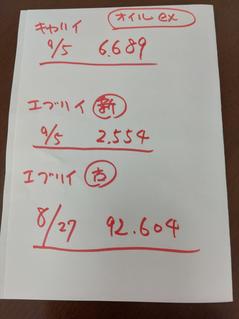 オイルex
キャリイ
9/5 6.689
エブリイ 新
9/5 2.554
エブリイ 古
8/27 92.604